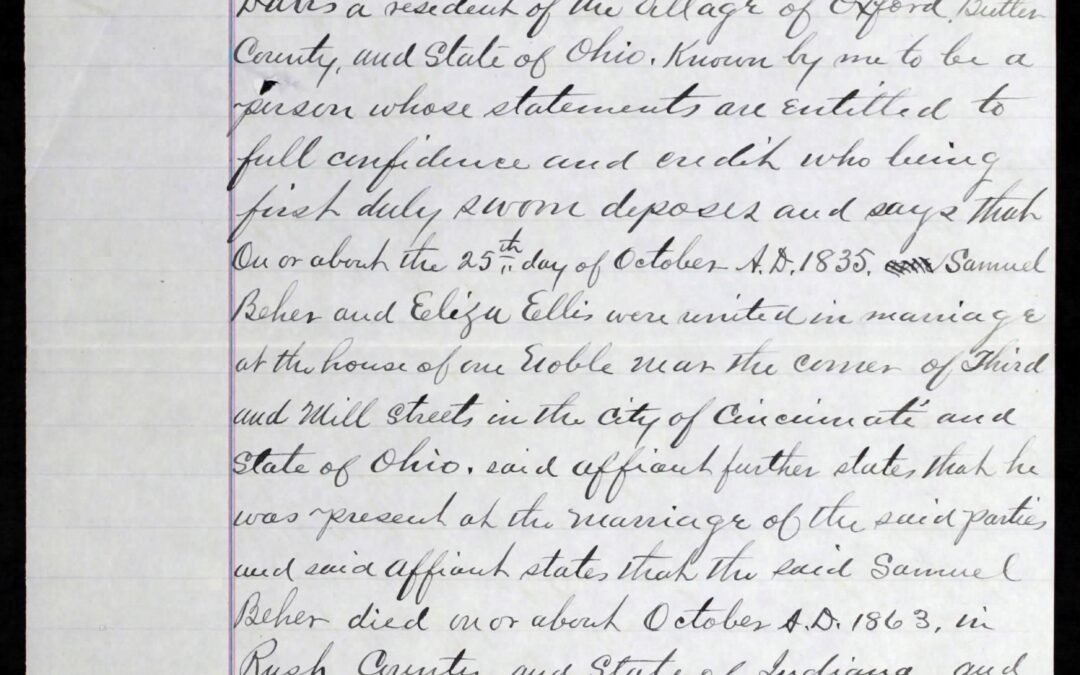 Davis a resident of the Village of Oxford, Butler
County, and State of Ohio. Known by me to be a
person whose statements are entitled to
full confidence and credit who being
first duly sworn deposes and says that
On or about the 25th day of October A.D. 1835. Samuel
Beher and Eliza Ellis were united in marriage
at the house of one Noble near the corner of Third
and Mill Streets in the City of Cincinnati and
State of Ohio. said affiant further states that he
was present at the marriage of the said parties
and said affiant states that the said Samuel
Beher died on or about October A.D. 1863, in
Rush County and State of Indiana and